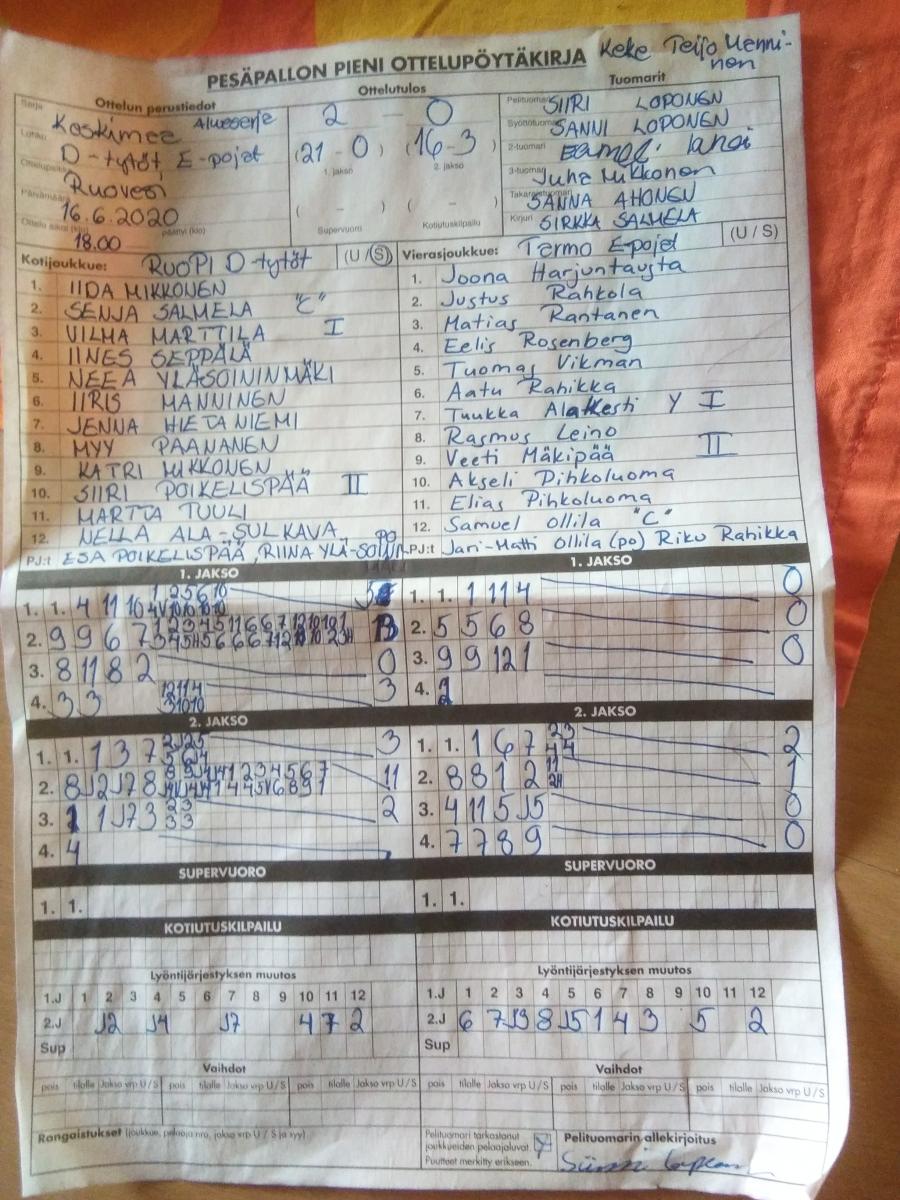 PESÄPALLON PIENI OTTELUPÖYTÄKIRJA Keke Teijo Menni-
nen
Ottelun perustiedot
Ottelutulos
Tuomarit
Sarja
Koskimee Alueserje
2 - 0
Pelituomari SIIRI LOPONEN
Lohko D-tytöt, E-pojat
(21 - 0) (16 - 3)
Syöttötuomari SANNI LOPONEN
1. jakso 2. jakso
2-tuomari
Ottelupaikka Ruovesi
3-tuomari Juha Mikkonen
Päivämäärä 16.6.2020
( - ) ( - )
Takarajatuomari SANNA AHONEN
Ottelu alkoi (klo) 18.00 päättyi (klo)
Supervuoro Kotiutuskilpailu
Kirjuri SIRKKA SALMELA
Kotijoukkue: RUOPI D-tytöt (U / S)
Vierasjoukkue: Tarmo E-pojat (U / S)
1. IIDA MIKKONEN
2. SENJA SALMELA "C"
3. VILMA MARTTILA I
4. IINES SEPPÄLÄ
5. NEEA YLÄSOININMÄKI
6. IIRIS MANNINEN
7. JENNA HIETANIEMI
8. MYY PAANANEN
9. KATRI MIKKONEN
10. SIIRI POIKELISPÄÄ II
11. MARTTA TUULI
12. NELLA ALA-SULKAVA
PJ:t ESA POIKELISPÄÄ, po RIINA YLÄ-SOININ
1. Joona Harjuntausta
2. Justus Rahkola
3. Matias Rantanen
4. Eelis Rosenberg
5. Tuomas Vikman
6. Aatu Rahikka
7. Tuukka Alakesti Y I
8. Rasmus Leino
9. Veeti Mäkipää II
10. Akseli Pihkoluoma
11. Elias Pihkoluoma
12. Samuel Ollila "C"
PJ:t Jari-Matti Ollila (po) Riku Rahikka
1. JAKSO
1. 1. 4 11 10
2. 9 9 6 7
3. 8 11 8 2 0
4. 3 3 3
1. JAKSO
1. 1. 1 11 4 0
2. 5 5 6 8 0
3. 9 9 12 1 0
4.
2. JAKSO
1. 1. 1 3 7 3
2. 8 J2 J7 8 11
3. 1 1 J7 3 2 3 2
3 3
4. 4
2. JAKSO
1. 1. 1 6 7 2 3 2
4 4
2. 8 8 1 2 1
3. 4 11 5 J5 0
4. 7 7 8 9 0
SUPERVUORO
1. 1.
SUPERVUORO
1. 1.
KOTIUTUSKILPAILU
KOTIUTUSKILPAILU
Lyöntijärjestyksen muutos
1.J 1 2 3 4 5 6 7 8 9 10 11 12
2.J J2 J4 J7 4 7 2
Sup
Lyöntijärjestyksen muutos
1.J 1 2 3 4 5 6 7 8 9 10 11 12
2.J 6 7 J3 8 J5 1 4 3 5 2
Sup
Vaihdot
pois tilalle Jakso vrp U / S pois tilalle Jakso vrp U / S pois tilalle Jakso vrp U / S
Vaihdot
pois tilalle Jakso vrp U / S pois tilalle Jakso vrp U / S pois tilalle Jakso vrp U / S
Rangaistukset (joukkue, pelaaja nro, jakso vrp U / S ja syy)
Pelituomari tarkastanut
joukkueiden pelaajaluvat.
Puutteet merkitty erikseen.
Pelituomarin allekirjoitus